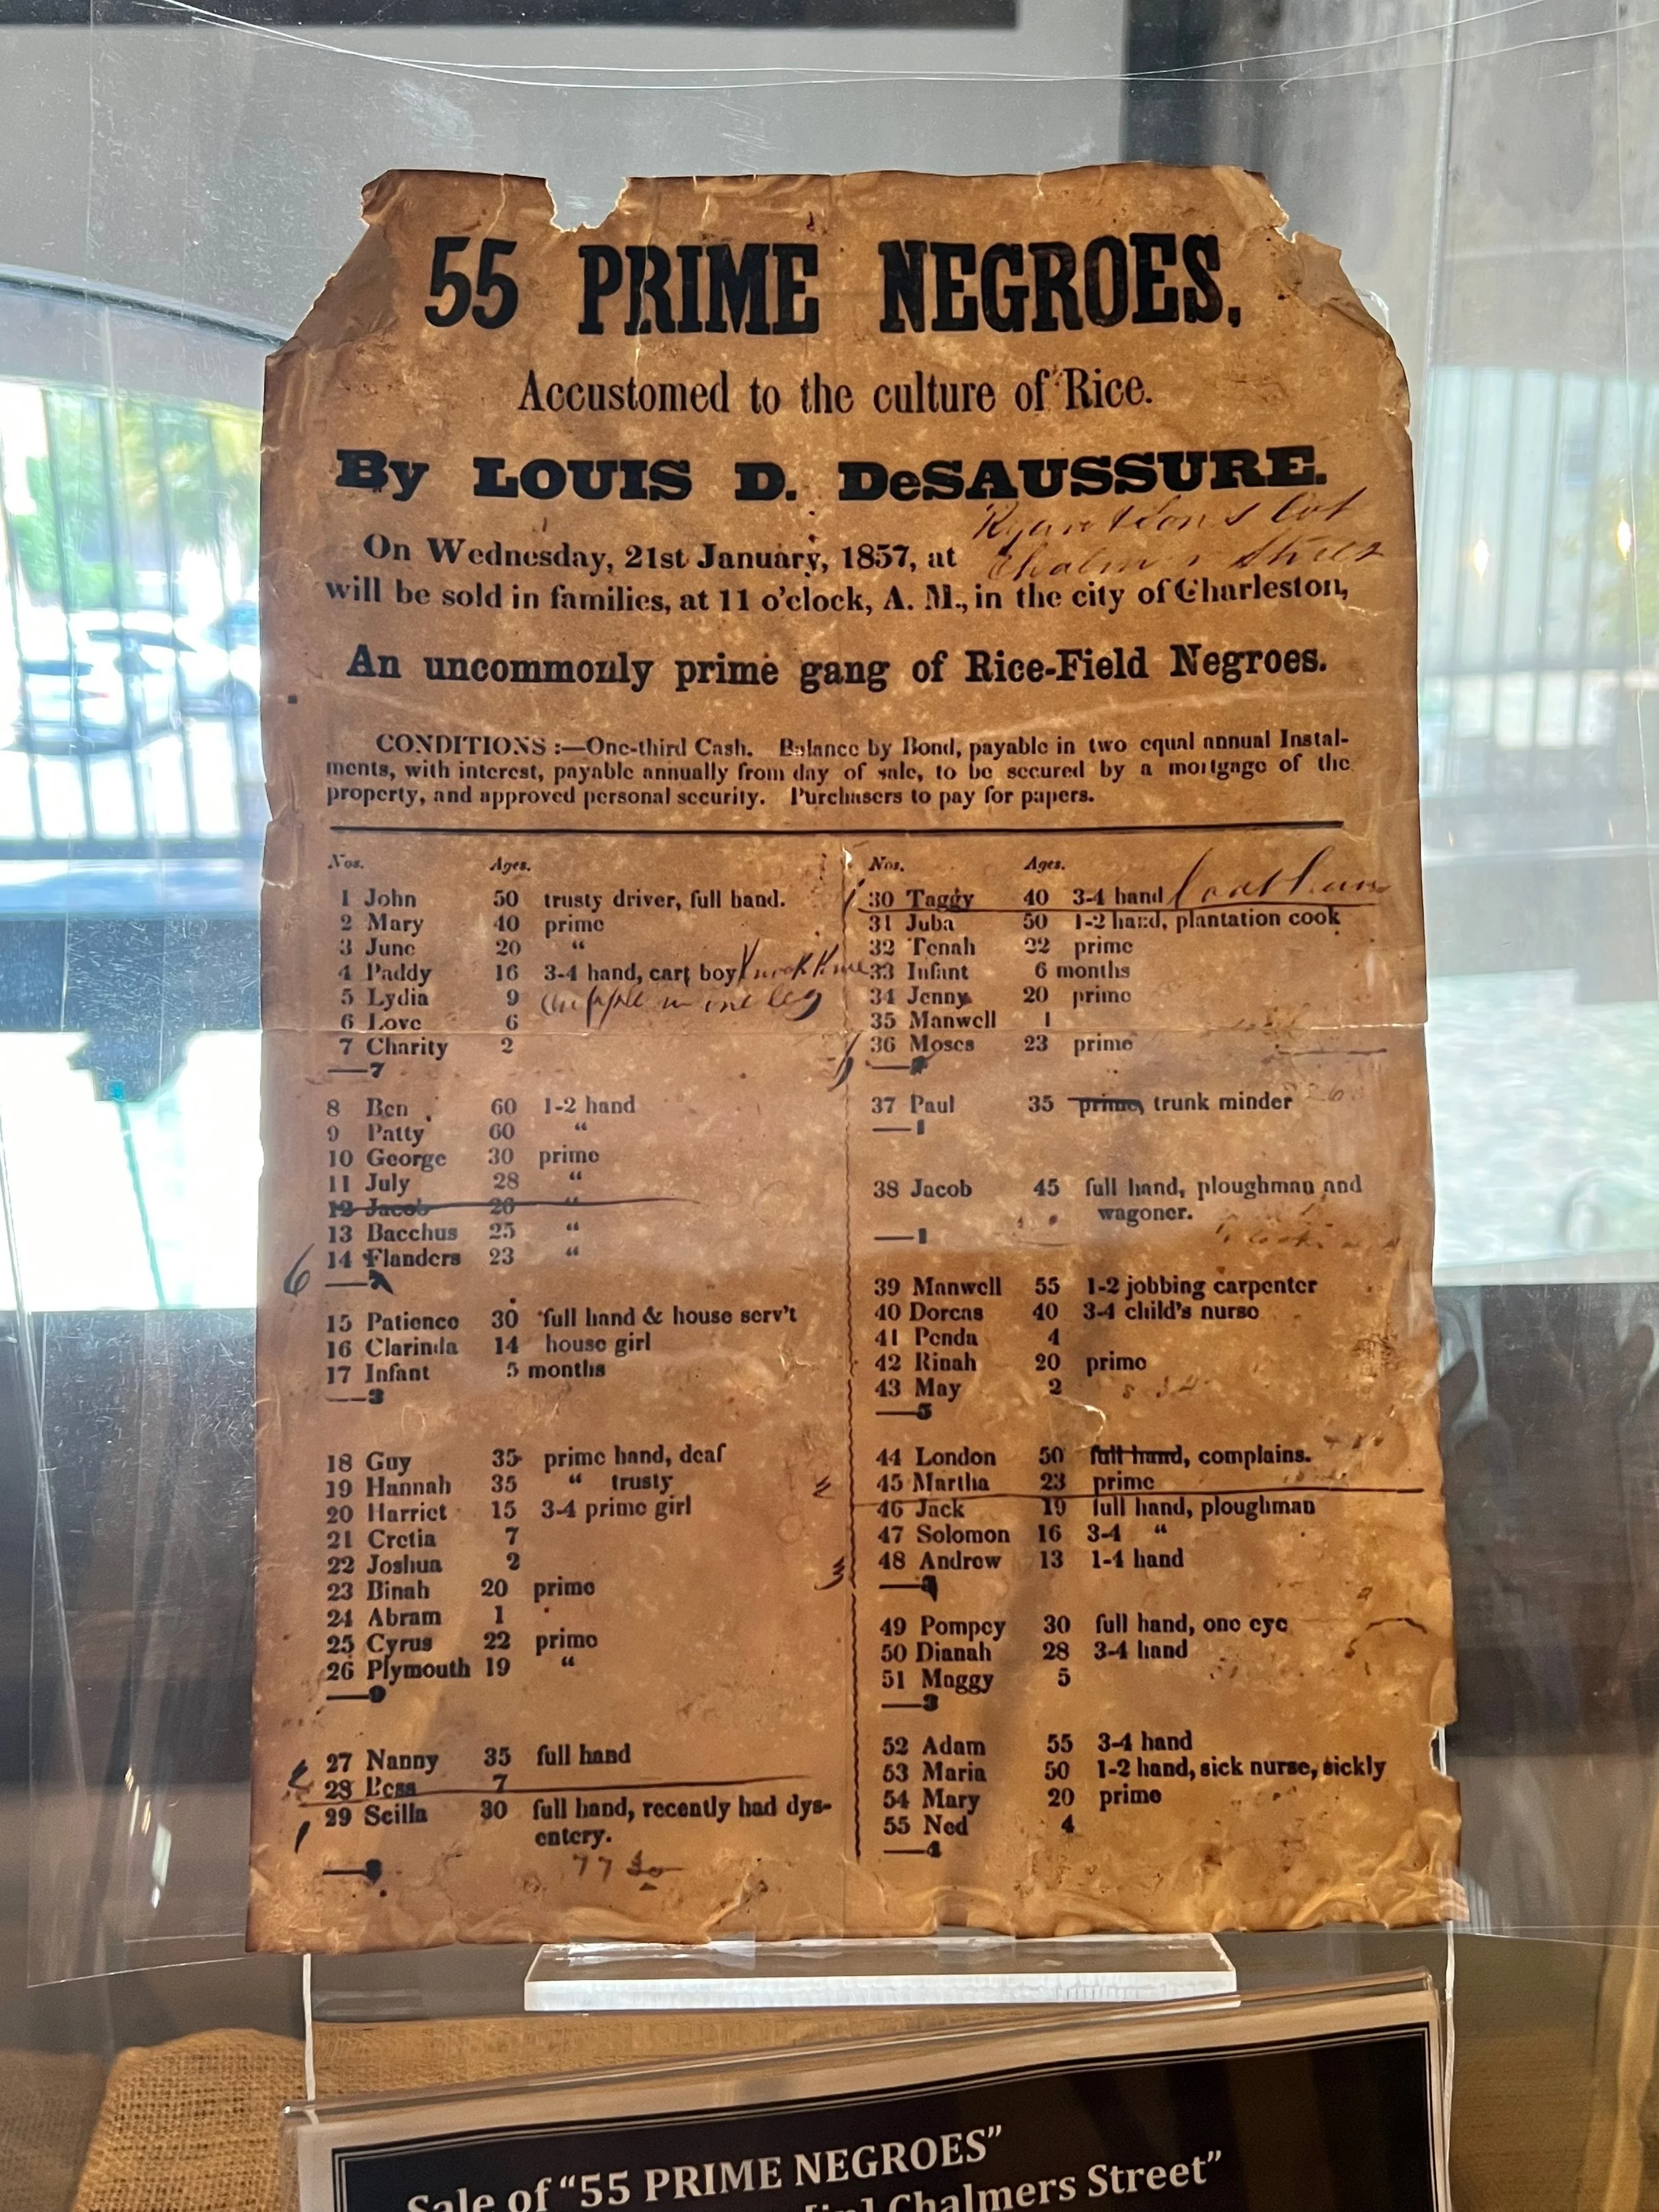 55 PRIME NEGROES,
Accustomed to the culture of Rice.
By LOUIS D. DeSAUSSURE.
On Wednesday, 21st January, 1857, at
will be sold in families, at 11 o'clock, A. M., in the city of Charleston,
An uncommonly prime gang of Rice-Field Negroes.
CONDITIONS :—One-third Cash. Balance by Bond, payable in two equal annual Instal-
ments, with interest, payable annually from day of sale, to be secured by a mortgage of the
property, and approved personal security. Purchasers to pay for papers.
Nos. Ages.
1 John 50 trusty driver, full hand.
2 Mary 40 prime
3 June 20 "
4 Paddy 16 3-4 hand, cart boy Knock Knee
5 Lydia 9 cripple in one leg
6 Love 6
7 Charity 2
—7
8 Ben 60 1-2 hand
9 Patty 60 "
10 George 30 prime
11 July 28 "
12 Jacob 26 "
13 Bacchus 25 "
14 Flanders 23 "
6 —7
15 Patience 30 full hand & house serv't
16 Clarinda 14 house girl
17 Infant 5 months
—3
18 Guy 35 prime hand, deaf
19 Hannah 35 " trusty
20 Harriet 15 3-4 prime girl
21 Cretia 7
22 Joshua 2
23 Binah 20 prime
24 Abram 1
25 Cyrus 22 prime
26 Plymouth 19 "
—9
27 Nanny 35 full hand
28 Bess 7
29 Scilla 30 full hand, recently had dys-
entery.
—3
Nos. Ages.
30 Taggy 40 3-4 hand
31 Juba 50 1-2 hand, plantation cook
32 Tenah 22 prime
33 Infant 6 months
34 Jenny 20 prime
35 Manwell 1
36 Moses 23 prime
37 Paul 35 prime, trunk minder
—1
38 Jacob 45 full hand, ploughman and
wagoner.
—1
39 Manwell 55 1-2 jobbing carpenter
40 Dorcas 40 3-4 child's nurse
41 Penda 4
42 Rinah 20 prime
43 May 2
—5
44 London 50 full hand, complains.
45 Martha 23 prime
46 Jack 19 full hand, ploughman
47 Solomon 16 3-4 "
48 Andrew 13 1-4 hand
49 Pompey 30 full hand, one eye
50 Dianah 28 3-4 hand
51 Maggy 5
—3
52 Adam 55 3-4 hand
53 Maria 50 1-2 hand, sick nurse, sickly
54 Mary 20 prime
55 Ned 4
—4
Sale of "55 PRIME NEGROES"
[in] Chalmers Street"